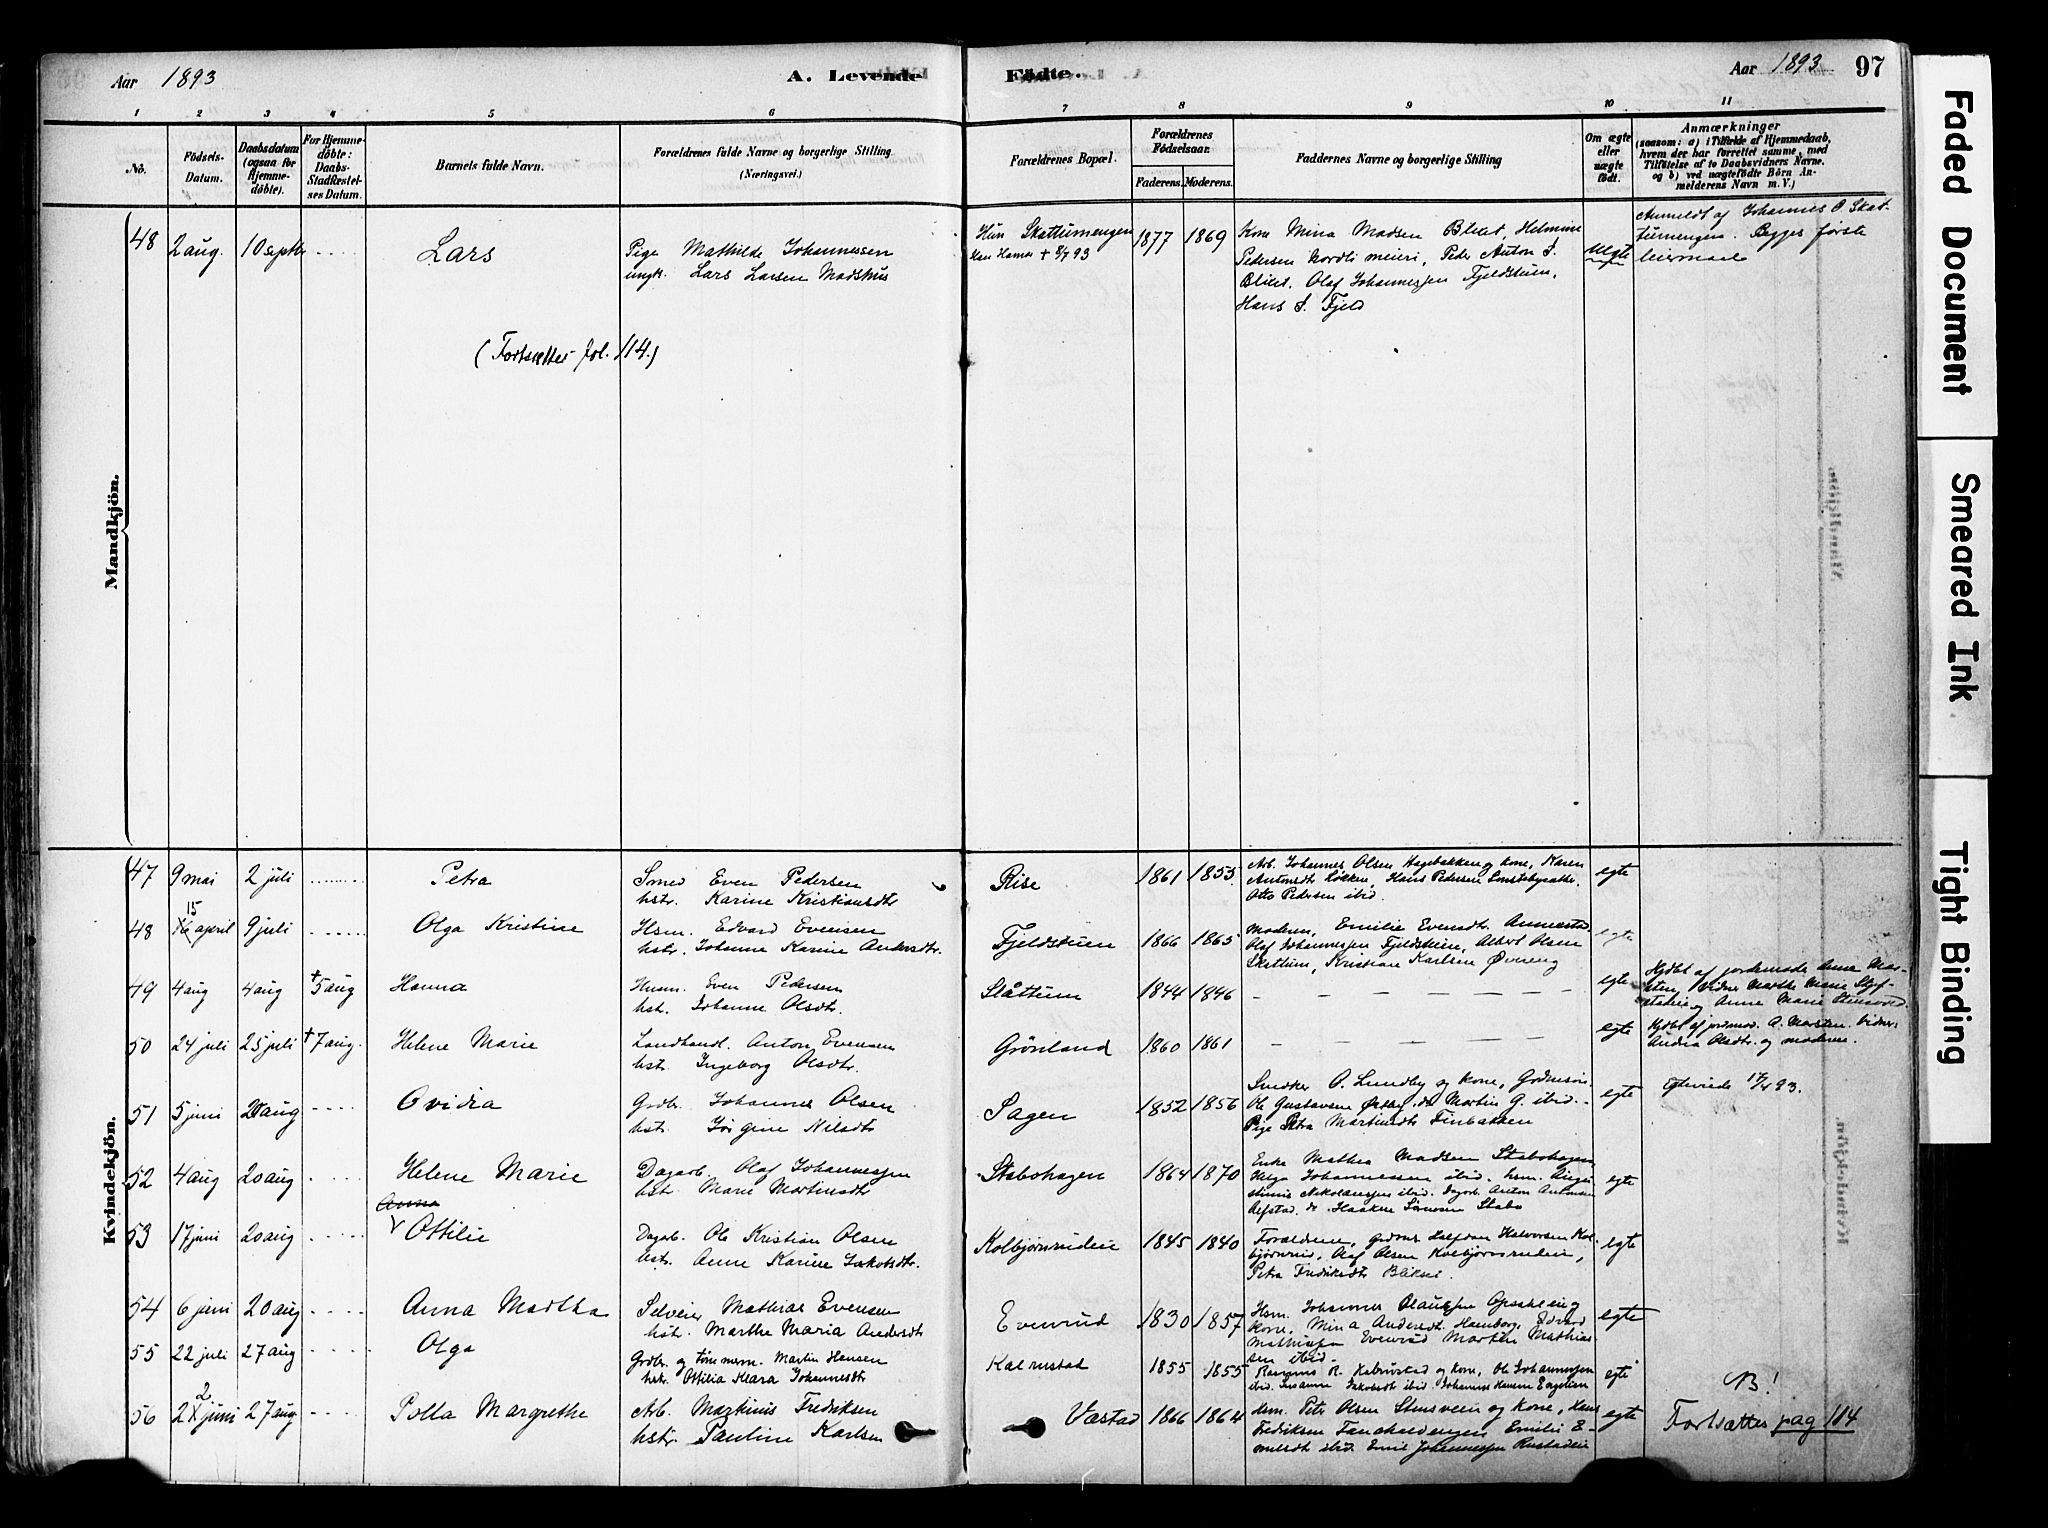 Aar 1893 A. Levende Födte. Aar 1893 97
1 2 3 4 5 6 7 8 9 10 11
No.
Födsels-Datum.
Daabsdatum (ogsaa for Hjemmedöbte).
For Hjemmedöbte: Daabs-Stadfæstelses Datum.
Barnets fulde Navn.
Forældrenes fulde Navne og borgerlige Stilling
(Næringsvei.)
Forældrenes Bopæl.
Forældrenes Födselsaar.
Faderens. Moderens.
Faddernes Navne og borgerlige Stilling
Om ægte eller uægte födt.
Anmærkninger
(saasom: a) i Tilfælde af Hjemmedaab,
hvem der har forrettet samme, med
Tilföielse af to Daabsvidners Navne.
og b) ved uægtefödte Börn An-
melderens Navn m. V.)
Mandkjön.
48 2 aug. 10 septbr Lars
Pige Mathilde Johannessen
ungk. Lars Larsen Madshus
Hun Skattumengen
Han Hamar + 8/7 93
1877 1869
Kone Mina Madsen Bliket, Helmine
Pedersen Nordli meieri, Peder Anton J.
Bliket, Olaf Johannessen Fjeldstuen,
Hans J. Fjeld
uegte
Anmeldt af Johannes O. Skat-
tumengen. Begges første
leiermaal
(Fortsættes fol. 114.)
Kvindekjön.
47 9 mai 2 juli Petra
Smed Even Pedersen
hstr. Karine Kristiansdtr
Rise 1861 1855
Arb. Johannes Olsen Hagebakken og kone, Karen
Antonsdt Løkken, Hans Pedersen
Otto Pedersen ibid.
egte
48 15 april 9 juli Olga Kristine
Hsm. Edvard Evensen
hstr. Johanne Karine Andersdtr.
Fjeldstuen 1866 1865
Moderen, Emilie Evensdt. Annestad
Olaf Johannessen Fjeldstuen, Albert Olsen
Skattum, Kristian Karlsen Øvreeng
egte
49 4 aug 4 aug + 5 aug Hanna
Husm. Even Pedersen
hst. Johanne Olsdtr.
Slåttum 1844 1846
egte
Hjdbt af jordemode Anne Mar-
sten, Vidner Marthe Marie
og Anne Marie
50 24 juli 25 juli + 7 aug. Helene Marie
Landhandl. Anton Evensen
hstr. Ingeborg Olsdtr.
Grønland 1860 1861
egte
Hjdbt af jordmod. A. Marsten. Vidner
Andrea Olsdtr. og moderen.
51 5 juni 20 aug Ovidia
Grdbr. Johannes Olsen
hstr. Jørgine Nilsdtr
Sagen 1852 1856
Snedker O. Lundby og kone,
Ole Gustavsen Østby, do Martin G. ibid.
Pige Petra Martinsdt Finbakken
egte
Egteviede 17/4 83.
52 4 aug 20 aug Helene Marie
Dagarb. Olaf Johannessen
hst. Marie Martinsdtr
Stabohagen 1864 1870
Enke Mathea Madsen Stabohagen
Helga Johannessen ibid. hsm. Augu-
stinius Nikolaisen ibid. Dagarb. Anton Antonsen
Alfstad. do. Haaken Simonsen Stabo
egte
53 17 juni 20 aug Anna Ottilie
Dagarb. Ole Kristian Olsen
hstr. Anne Karine Jakobsdtr.
Kolbjørnrudeie 1845 1840
Forældrene, gaardbr Halfdan Halvorsen Kol-
bjørnrud, Olaf Olsen Kolbjørnsrudeie,
Petra Fredriksdt Bliksei.
egte
54 6 juni 20 aug Anna Martha
Selveier Mathias Evensen
hst. Marthe Maria Andersdtr
Evenrud 1830 1857
Hsm. Johannes Olaussen Opsahleng
kone, Mina Andersdt. Hemborg, Edvard
Mathissen Evenrud Morten Mathis-
sen ibid.
egte
55 22 juli 27 aug Olga
Grdbr. og tømmerm. Martin Hansen
hstr. Ottilia Klara Johannesdtr
Kalrustad 1855 1855
Rasmus R. Kalrustad og kone, Ole Johannessen
ibid. Susanne Jakobsdt ibid. Johannes Hansen Engelien
egte
B!
56 2 juni 27 aug Polla Margrethe
Arb. Martinus Fredriksen
hstr. Pauline Karlsen
Væstad 1866 1864
Hsm. Peter Olsen Stensveen og kone, Hans
Fredriksen Emilie E-
milsdt ibid. Emil Johannessen Rustadeie
egte
Fortsættes pag 114
Faded Document
Smeared Ink
Tight Binding